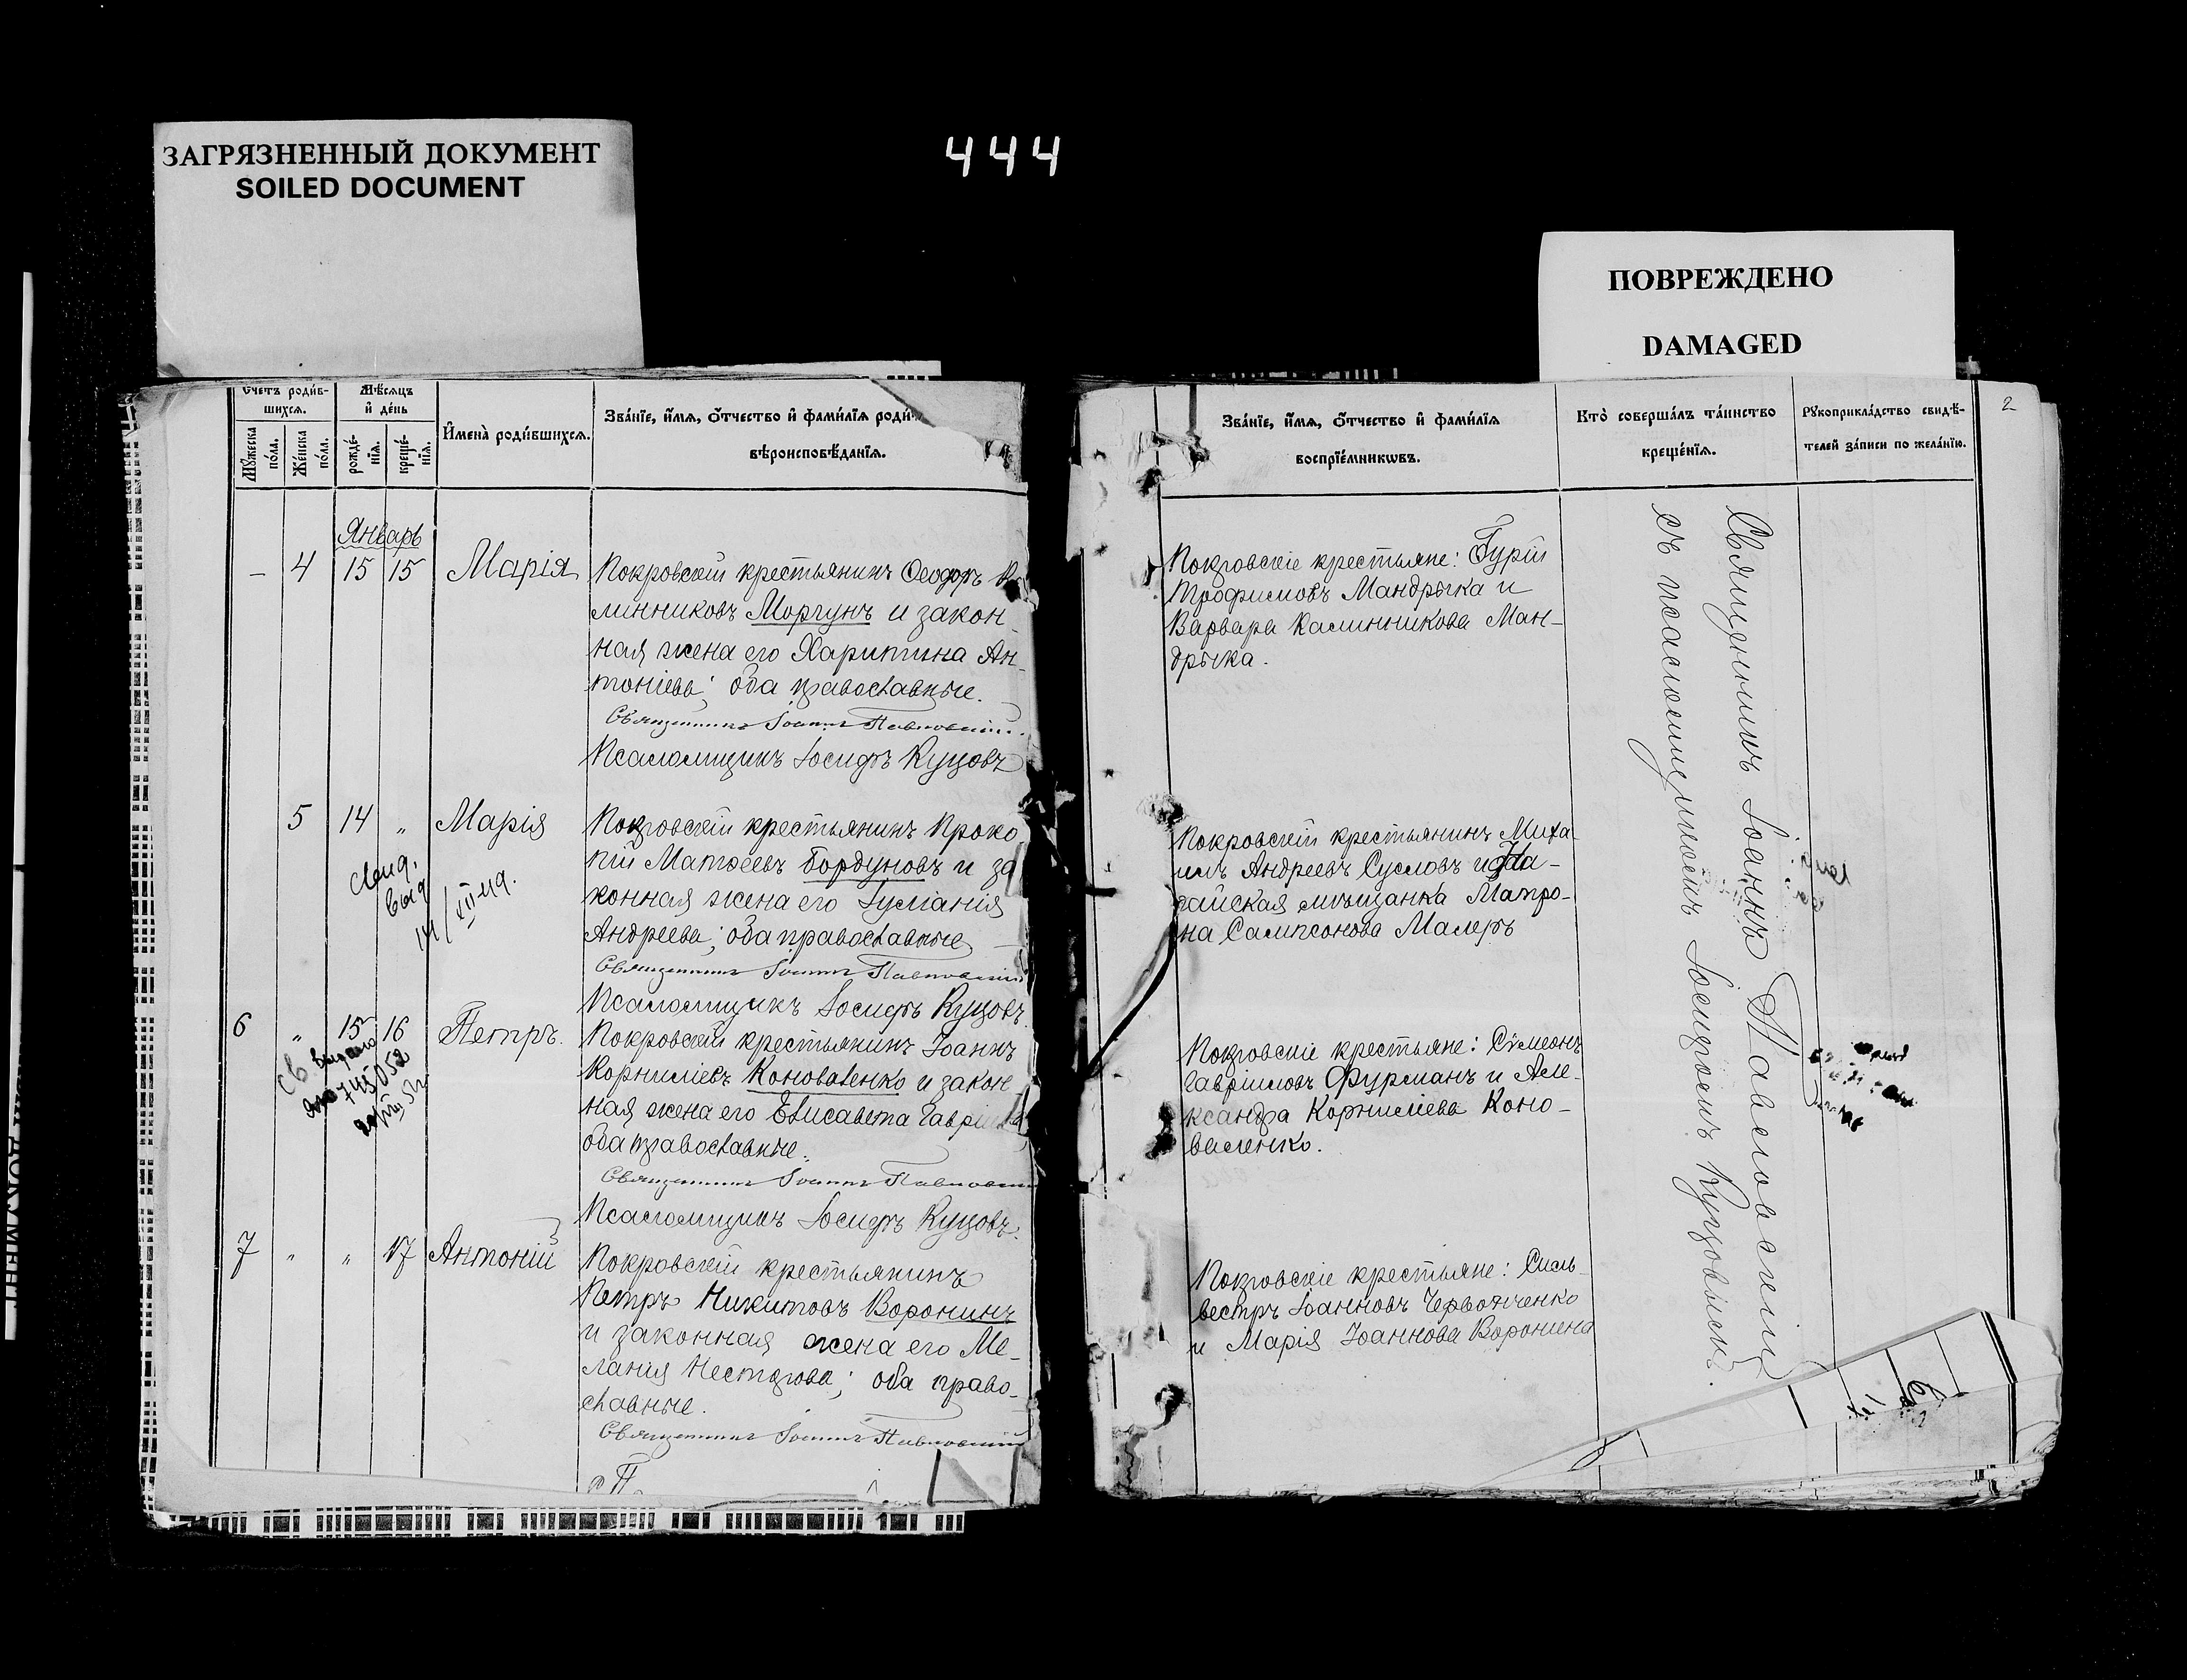 444
ЗАГРЯЗНЕННЫЙ ДОКУМЕНТ
SOILED DOCUMENT
ПОВРЕЖДЕНО
DAMAGED
Счетъ роди́в-
шихся.
Мѣсяцъ
и́ де́нь
Мꙋжеска по́ла.
Же́нска по́ла.
рожде́-
нїя.
креще́-
нїя.
И҆мена̀ роди́вшихся.
Зва́нїе, и҆́мѧ, ѻ҆́тчество и҆ фами́лїѧ роди
вѣроисповѣ́данїѧ.
Январь
– 4 15 15 Марія
Покровскій крестьянинъ Ѳеодоръ К
линниковъ Моргунъ и закон-
ная жена его Харитина Ан-
тоніева; оба православные.
Священникъ Іоаннъ Павловскій.
Псаломщикъ Іосифъ Куцовъ
5 14 „ Марія
свид.
выд
14/XII-
Покровскій крестьянинъ Проко
пій Матѳеевъ Бордуновъ и за
конная жена его Іуліанія
Андреева; оба православные
Священникъ Іоаннъ Павловскій
Псаломщикъ Іосифъ Куцовъ.
6 „ 15 16 Петръ.
Св выдано
Покровскій крестьянинъ Іоаннъ
Корниліевъ Коноваленко и закон
ная жена его Елисавета Гаврі
оба православные.
Священникъ Іоаннъ Павловскі
Псаломщикъ Іосифъ Куцовъ.
7 „ „ 17 Антоній
Покровскій крестьянинъ
Петръ Никитовъ Воронинъ
и законная жена его Ме-
ланія Несторова; оба право-
славные.
Священникъ Іоаннъ Павловскій
2
Зва́нїе, и҆́мѧ, ѻ҆́тчество и҆ фами́лїѧ
воспрїе́мникѡвъ.
Кто̀ соверша́лъ та́инство
креще́нїѧ.
Рꙋкоприкла́дство свидѣ́-
телей за́писи по жела́нїю.
Покровскіе крестьяне: Гурій
Трофимовъ Мандрыка и
Варвара Калинникова Ман-
дрыка.
Покровскій крестьянинъ Миха-
илъ Андреевъ Сусловъ и
мѣщанка Матро-
на Сампсонова Малеръ
Покровскіе крестьяне: Сѵмеонъ
Гавріиловъ Фурманъ и Але-
ксандра Корниліева Коно-
валенко.
Покровскіе крестьяне: Силь-
вестръ Іоанновъ Червонченко
и Марія Іоаннова Воронина
Священникъ Іоаннъ Павловскій
съ псаломщикомъ Іосифомъ Куцовымъ.